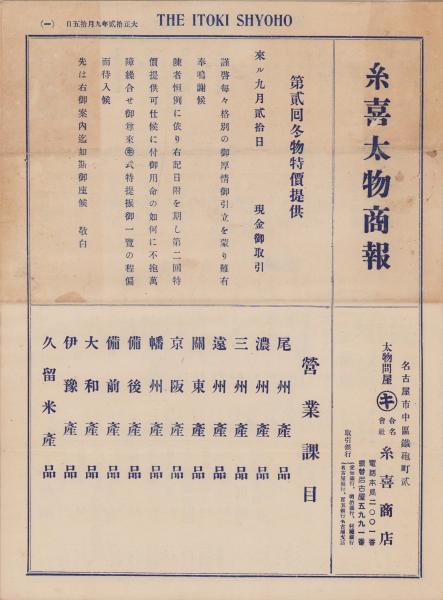 THE ITOKI SHYOHO
大正拾貳年九月拾五日
(一)
糸喜太物商報
第貳回冬物特價提供
來ル九月貳拾日 現金御取引
謹啓每々格別の御厚情御引立を蒙り難有
奉鳴謝候
陳者恒例に依り右記日附を期し第二回特
價提供可仕候に付御用命の如何に不拘萬
障繰合せ御尊來㋖式特提振御一覽の程偏
而待入候
先は右御案內迄如斯御座候 敬白
名古屋市中區鐵砲町貳
太物問屋 ㋖ 合名會社 糸喜商店
電話本局二〇〇一番
振替名古屋五九九一番
取引銀行
營業課目
尾州產品
濃州產品
三州產品
遠州產品
關東產品
京阪產品
幡州產品
備後產品
備前產品
大和產品
伊豫產品
久留米產品